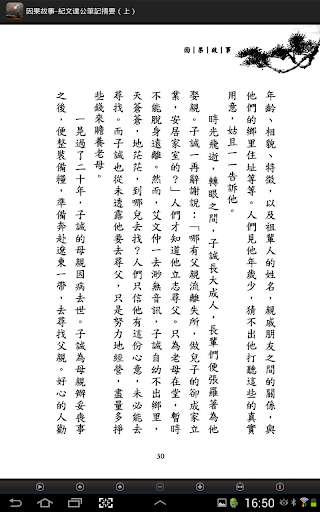 因果故事-紀文達公筆記摘要（上）
因果故事
年齡、相貌、特徵，以及祖輩人的姓名，親戚朋友之間的關係，與
他們的鄉里住址等等。人們見他年歲少，猜不出他打聽這些的真實
用意，姑且一一告訴他。
時光飛逝，轉眼之間，子誠長大成人，長輩們便張羅著為他
娶親。子誠一再辭謝說：「哪有父親流離失所，做兒子的卻成家立
業，安居家室的？」人們才知道他立志尋父。只為老母在堂，暫時
不能脫身遠離。然而，艾文仲一去渺無音訊，子誠自幼不出鄉里，
天蒼蒼，地茫茫，到哪兒去找？人們只信他有這份心意，未必能去
尋找。而子誠也從未透露他要去尋父，只是努力地經營，盡量多掙
些錢來贍養老母。
一晃過了二十年，子誠的母親因病去世。子誠為母親辦妥喪事
之後，便整裝備糧，準備奔赴遼東一帶，去尋找父親。好心的人勸
30
16:50